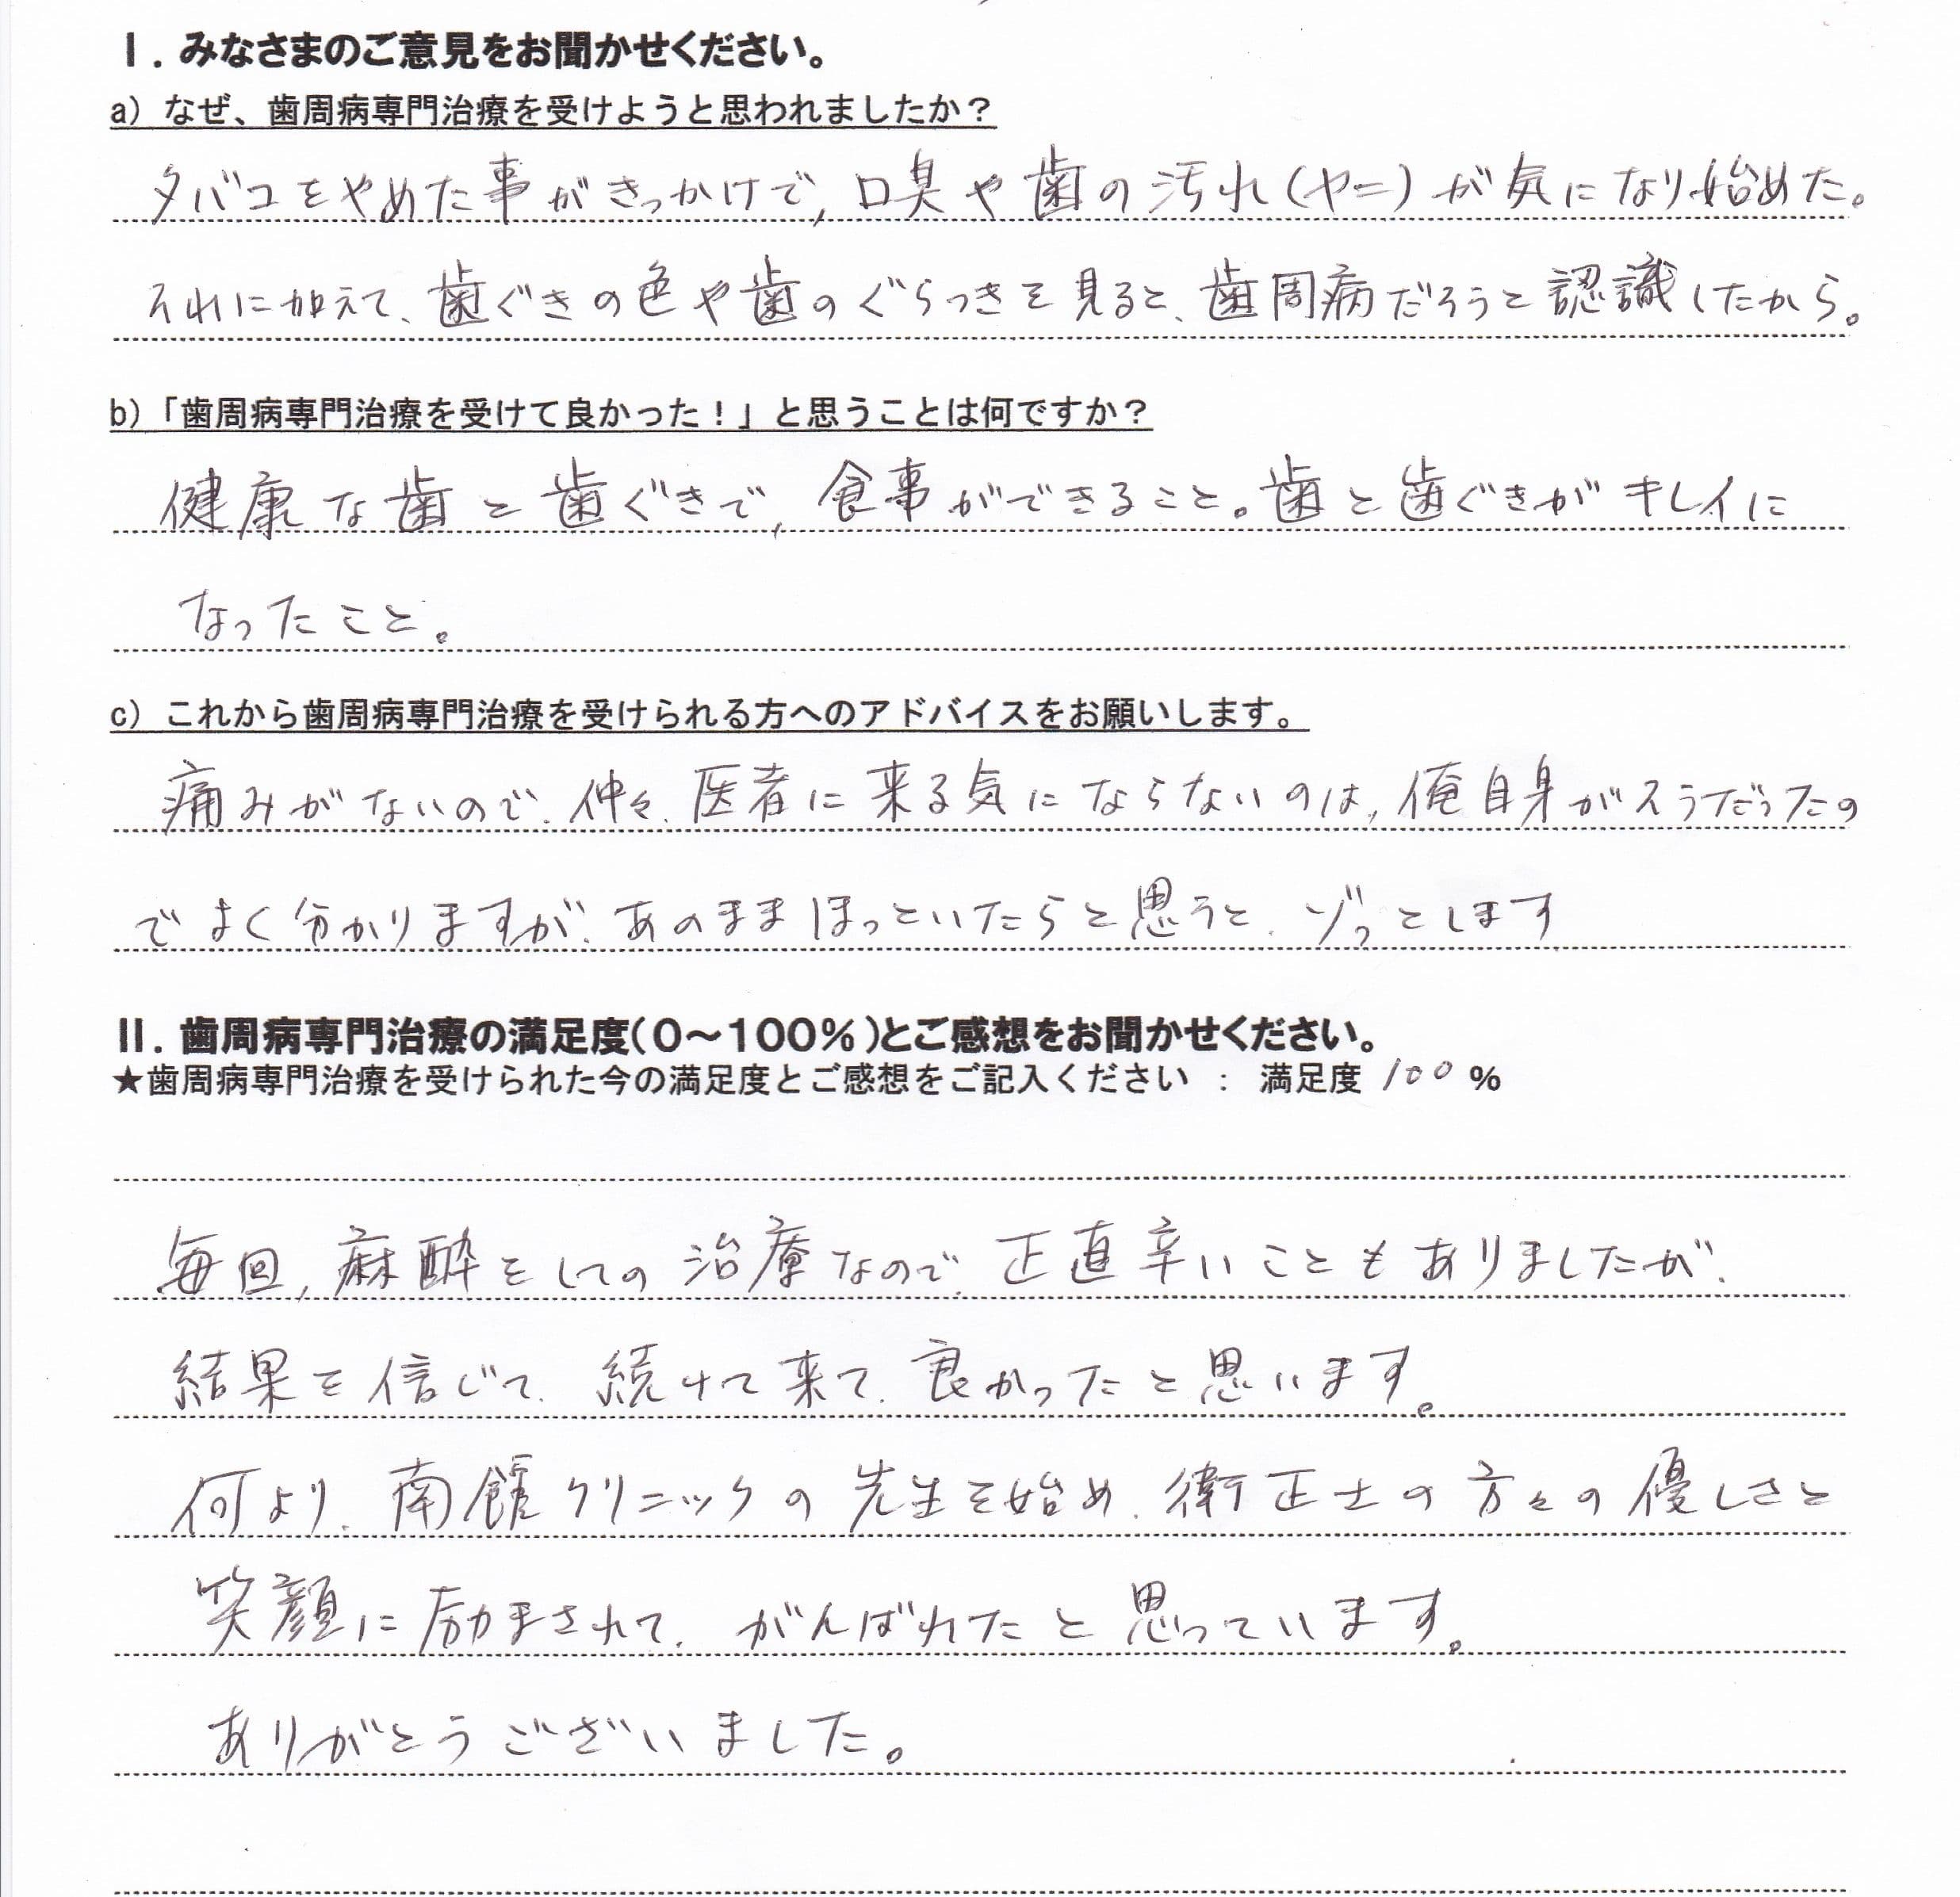 Ⅰ．みなさまのご意見をお聞かせください。
a）なぜ、歯周病専門治療を受けようと思われましたか？
タバコをやめた事がきっかけで、口臭や歯の汚れ(ヤニ)が気になり始めた。
それに加えて、歯ぐきの色や歯のぐらつきを見ると、歯周病だろうと認識したから。
b）「歯周病専門治療を受けて良かった！」と思うことは何ですか？
健康な歯と歯ぐきで、食事ができること。歯と歯ぐきがキレイに
なったこと。
c）これから歯周病専門治療を受けられる方へのアドバイスをお願いします。
痛みがないので、仲々、医者に来る気にならないのは、俺自身がそうだったの
でよく分かりますが、あのままほっといたらと思うと、ゾっとします
Ⅱ．歯周病専門治療の満足度（０～１００％）とご感想をお聞かせください。
★歯周病専門治療を受けられた今の満足度とご感想をご記入ください ： 満足度 100 %
毎回、麻酔をしての治療なので、正直辛いこともありましたが、
結果を信じて、続けて来て、良かったと思います。
何より、南館クリニックの先生を始め、衛正士の方々の優しさと
笑顔に励まされて、がんばれたと思っています。
ありがとうございました。